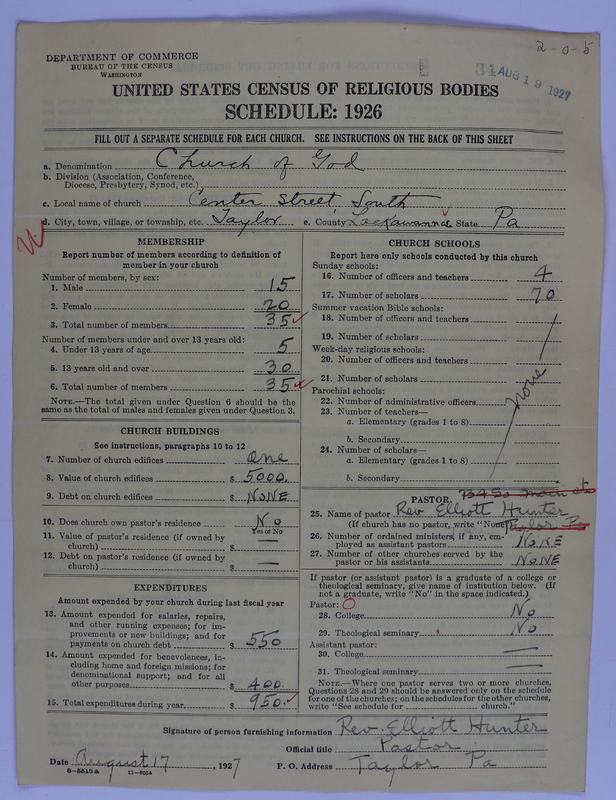 2-0-5
DEPARTMENT OF COMMERCE
BUREAU OF THE CENSUS
WASHINGTON
34 AUG 19 1927
UNITED STATES CENSUS OF RELIGIOUS BODIES
SCHEDULE: 1926
FILL OUT A SEPARATE SCHEDULE FOR EACH CHURCH. SEE INSTRUCTIONS ON THE BACK OF THIS SHEET
a. Denomination Church of God
b. Division (Association, Conference,
Diocese, Presbytery, Synod, etc.)
c. Local name of church Center Street, South
d. City, town, village, or township, etc. Taylor e. County Lackawanna State Pa
MEMBERSHIP
Report number of members according to definition of
member in your church
Number of members, by sex:
1. Male 15
2. Female 20
3. Total number of members 35
Number of members under and over 13 years old:
4. Under 13 years of age 5
5. 13 years old and over 30
6. Total number of members 35
NOTE.—The total given under Question 6 should be the
same as the total of males and females given under Question 3.
CHURCH BUILDINGS
See instructions, paragraphs 10 to 12
7. Number of church edifices One
8. Value of church edifices $ 5000.
9. Debt on church edifices $ NONE
10. Does church own pastor's residence? No
Yes or No
11. Value of pastor's residence (if owned by
church) $ —
12. Debt on pastor's residence (if owned by
church) $ —
EXPENDITURES
Amount expended by your church during last fiscal year
13. Amount expended for salaries, repairs,
and other running expenses; for im-
provements or new buildings; and for
payments on church debt $ 550
14. Amount expended for benevolences, in-
cluding home and foreign missions; for
denominational support; and for all
other purposes $ 400.
15. Total expenditures during year $ 950.
CHURCH SCHOOLS
Report here only schools conducted by this church
Sunday schools:
16. Number of officers and teachers 4
17. Number of scholars 70
Summer vacation Bible schools:
18. Number of officers and teachers
19. Number of scholars
Week-day religious schools:
20. Number of officers and teachers
21. Number of scholars
Parochial schools:
22. Number of administrative officers
23. Number of teachers—
a. Elementary (grades 1 to 8)
b. Secondary
24. Number of scholars—
a. Elementary (grades 1 to 8)
b. Secondary
none
PASTOR So Main St
25. Name of pastor Rev Elliott Hunter
(If church has no pastor, write "None") Taylor Pa
26. Number of ordained ministers, if any, em-
ployed as assistant pastors NONE
27. Number of other churches served by the
pastor or his assistants NONE
If pastor (or assistant pastor) is a graduate of a college or
theological seminary, give name of institution below. (If
not a graduate, write "No" in the space indicated.)
Pastor:
28. College No
29. Theological seminary No
Assistant pastor:
30. College —
31. Theological seminary —
NOTE.—Where one pastor serves two or more churches,
Questions 28 and 29 should be answered only on the schedule
for one of the churches; on the schedules for the other churches,
write "See schedule for church."
Signature of person furnishing information Rev. Elliott Hunter
Official title Pastor
Date August 17, 1927 P. O. Address Taylor Pa